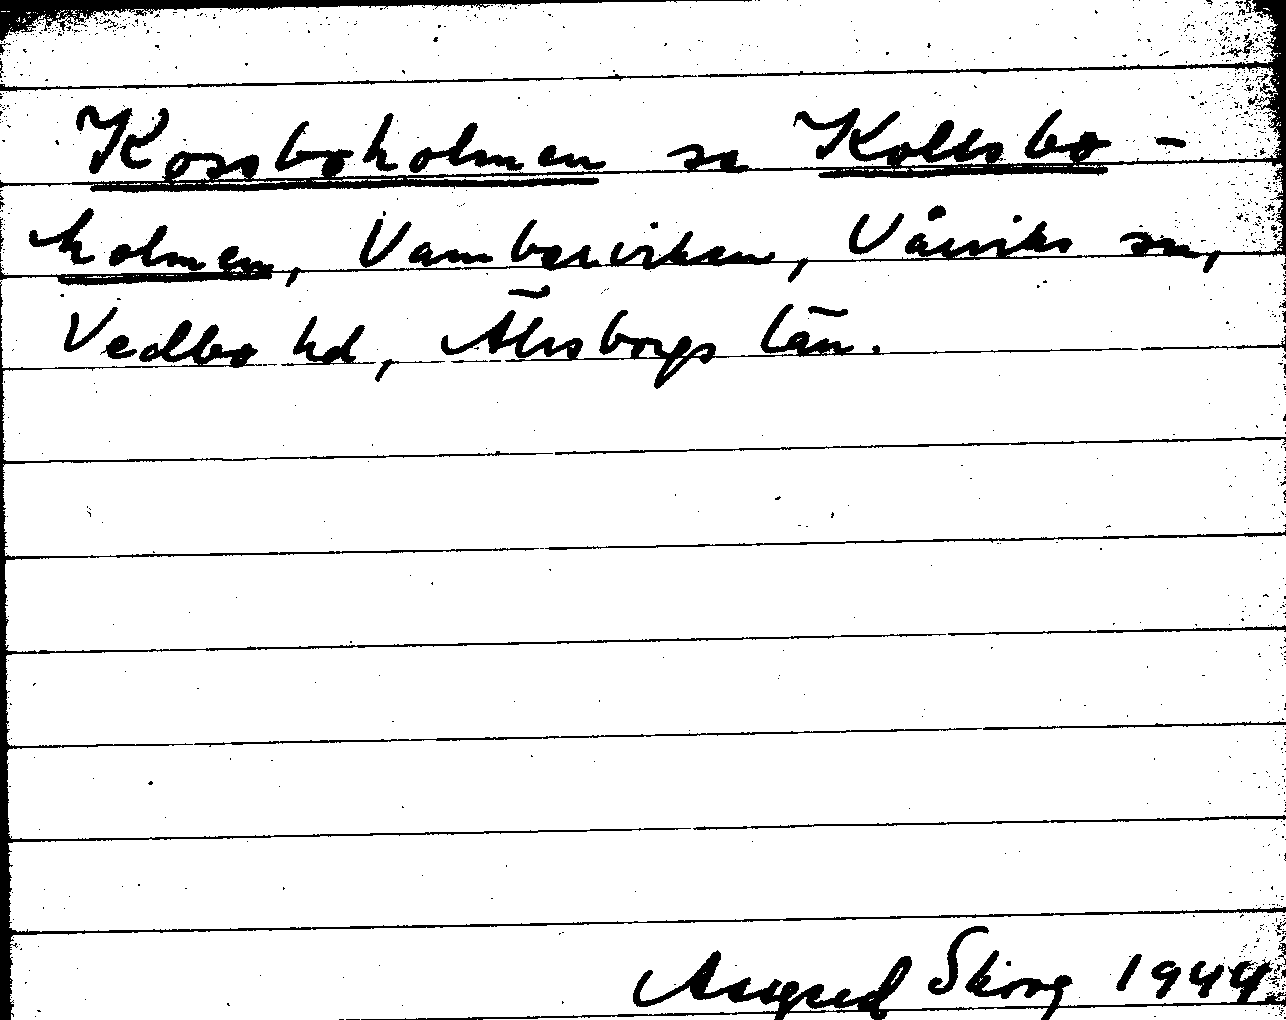 Kossboholmen se Kollsbo-
holmen, Vambersviken, Vårviks sn,
Vedbo hd, Älvsborgs län.
Skorg 1944